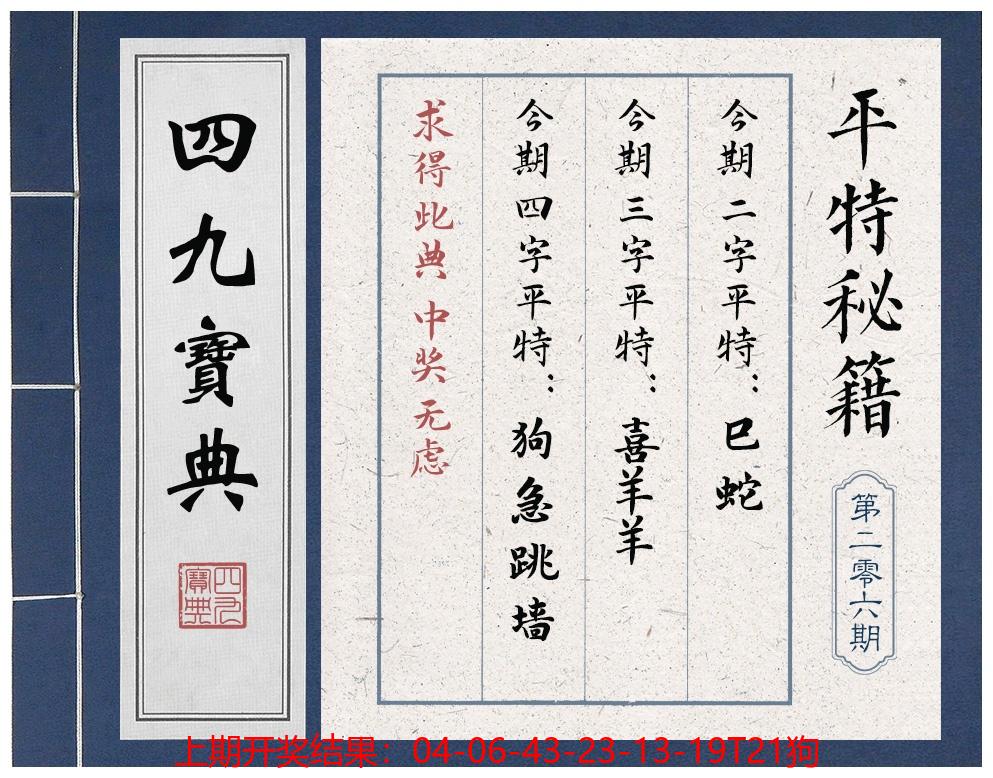 平特秘籍
第二零六期
今期二字平特：巳蛇
今期三字平特：喜羊羊
今期四字平特：狗急跳墙
求得此典 中奖无虑
四九寶典
四九寶典
上期开奖结果：04-06-43-23-13-19T21狗